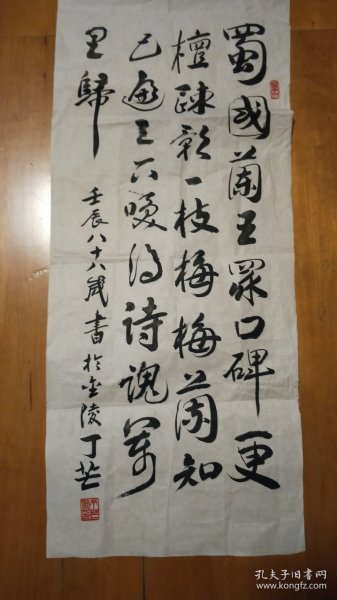 蜀國蘭王眾口碑更
擅疎影一枝梅梅蘭知
己遍天下喚得詩魂萬
里歸
壬辰八十八歲書於金陵丁芒
孔夫子旧书网
www.kongfz.com